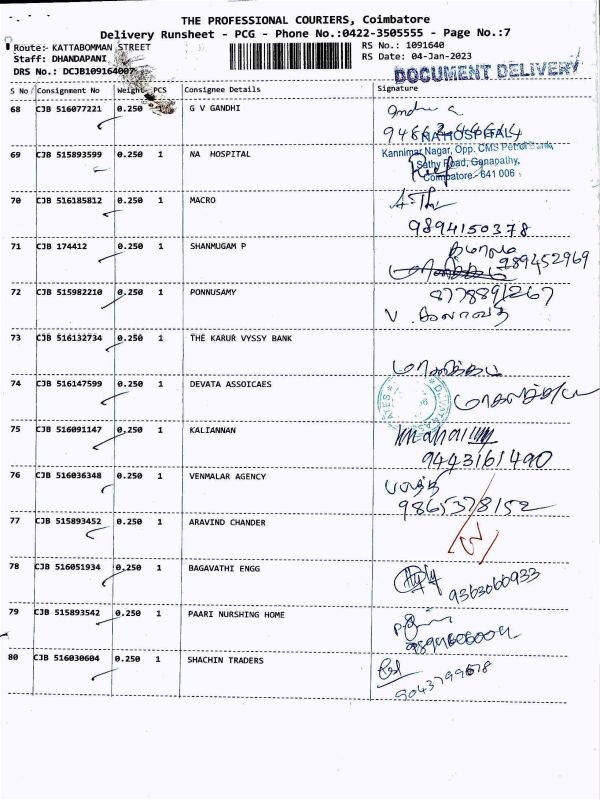 THE PROFESSIONAL COURIERS, Coimbatore
Delivery Runsheet - PCG - Phone No.:0422-3505555 - Page No.:7
Route:- KATTABOMMAN STREET
RS No.: 1091640
Staff: DHANDAPANI
RS Date: 04-Jan-2023
DRS No.: DCJB109164007
DOCUMENT DELIVERY
S No Consignment No Weight PCS Consignee Details Signature
68 CJB 516077221 0.250 1 G V GANDHI
NA HOSPITAL
69 CJB 515893599 0.250 1 NA HOSPITAL
Kannimar Nagar, Opp. CMS Petrol Bunk,
Sathy Road, Ganapathy,
Coimbatore - 641 006
70 CJB 516185812 0.250 1 MACRO
9894150378
71 CJB 174412 0.250 1 SHANMUGAM P
989452969
72 CJB 515982210 0.250 1 PONNUSAMY
8778891267
73 CJB 516132734 0.250 1 THE KARUR VYSSY BANK
74 CJB 516147599 0.250 1 DEVATA ASSOICAES
75 CJB 516091147 0.250 1 KALIANNAN
9443161490
76 CJB 516036348 0.250 1 VENMALAR AGENCY
9865378152
77 CJB 515893452 0.250 1 ARAVIND CHANDER
78 CJB 516051934 0.250 1 BAGAVATHI ENGG
9363066933
79 CJB 515893542 0.250 1 PAARI NURSHING HOME
80 CJB 516030604 0.250 1 SHACHIN TRADERS
9043799678